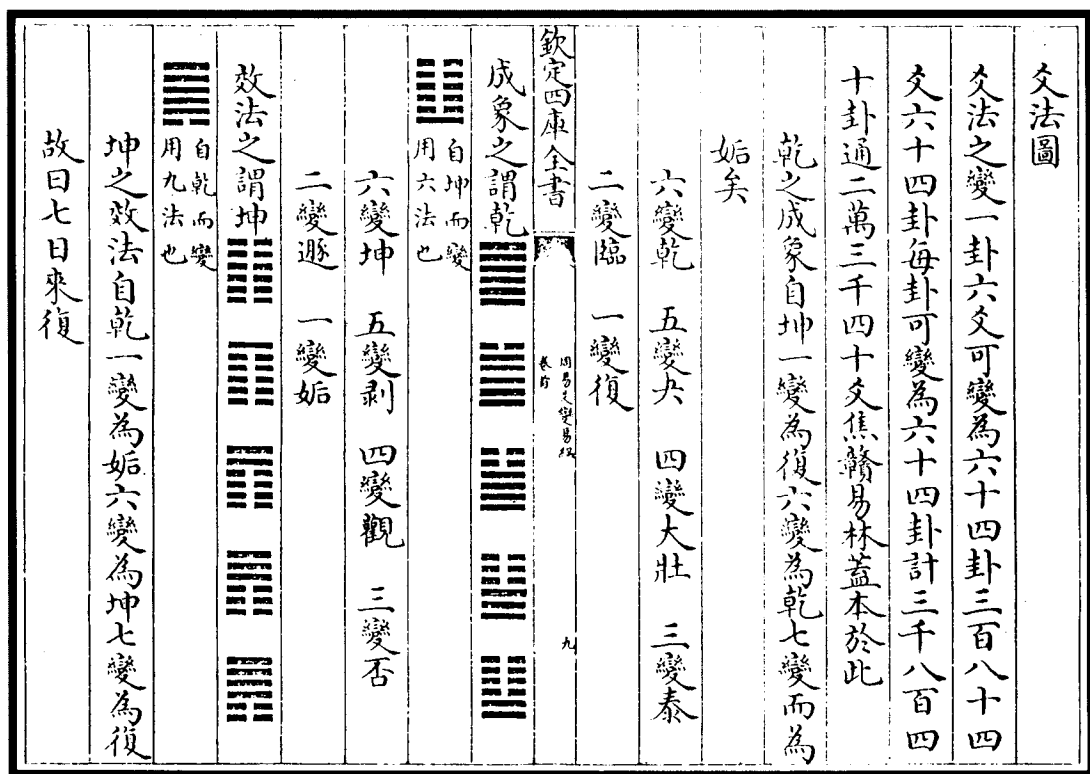 爻法圖
爻法之變一卦六爻可變為六十四卦三百八十四
爻六十四卦每卦可變為六十四卦計三千八百四
十卦通二萬三千四十爻焦贛易林蓋本於此
乾之成象自坤一變為復六變為乾七變而為
姤矣
六變乾　五變夬　四變大壯　三變泰
二變臨　一變復
欽定四庫全書
周易爻變易縕
卷前
九
成象之謂乾
自坤而變
用六法也
六變坤　五變剥　四變觀　三變否
二變遯　一變姤
效法之謂坤
自乾而變
用九法也
坤之效法自乾一變為姤六變為坤七變為復
故曰七日來復